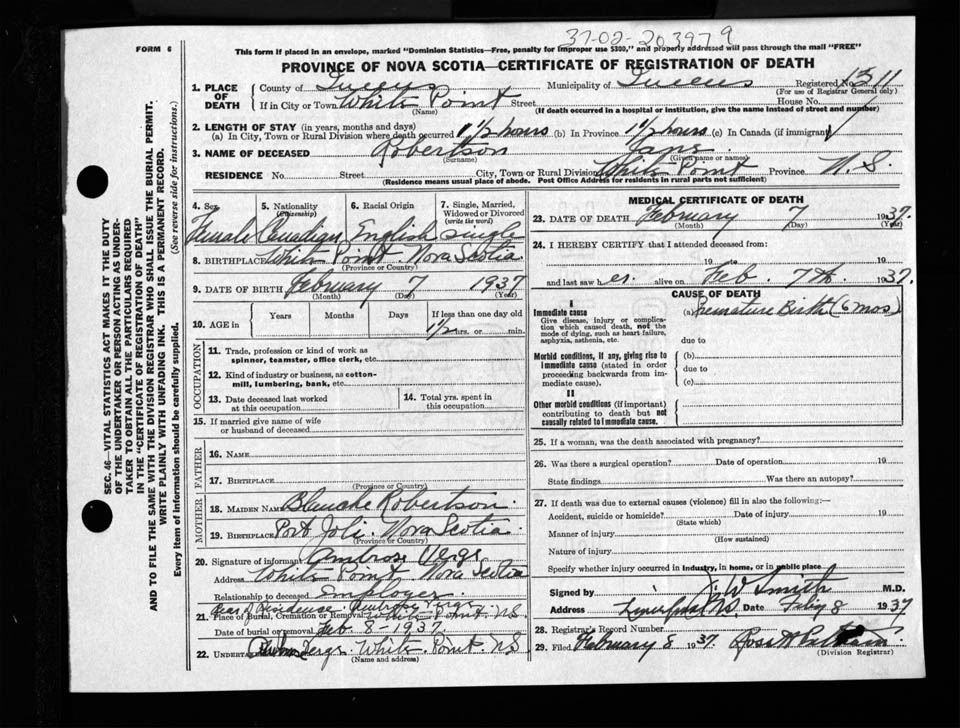 37-02-203979
FORM 6
This form if placed in an envelope, marked "Dominion Statistics—Free, penalty for improper use $300," and properly addressed will pass through the mail "FREE"
PROVINCE OF NOVA SCOTIA—CERTIFICATE OF REGISTRATION OF DEATH
1. PLACE OF DEATH County of Queens Municipality of Queens Registered No. 1311
(For use of Registrar General only)
If in City or Town White Point Street House No.
(Name) (If death occurred in a hospital or institution, give the name instead of street and number)
2. LENGTH OF STAY (in years, months and days)
(a) In City, Town or Rural Division where death occurred 1 1/2 hours (b) In Province 1 1/2 hours (c) In Canada (if immigrant)
3. NAME OF DECEASED Robertson Jane
(Surname) (Given name or names)
RESIDENCE No. Street City, Town or Rural Division White Point Province N.S.
(Residence means usual place of abode. Post Office Address for residents in rural parts not sufficient)
SEC. 46—VITAL STATISTICS ACT MAKES IT THE DUTY
OF THE UNDERTAKER OR PERSON ACTING AS UNDER-
TAKER TO OBTAIN ALL THE PARTICULARS REQUIRED
IN THE "CERTIFICATE OF REGISTRATION OF DEATH"
AND TO FILE THE SAME WITH THE DIVISION REGISTRAR WHO SHALL ISSUE THE BURIAL PERMIT.
WRITE PLAINLY WITH UNFADING INK. THIS IS A PERMANENT RECORD.
Every item of information should be carefully supplied. (See reverse side for instructions.)
4. Sex 5. Nationality (Citizenship) 6. Racial Origin 7. Single, Married, Widowed or Divorced (write the word)
Female Canadian English Single
8. BIRTHPLACE White Point Nova Scotia
(Province or Country)
9. DATE OF BIRTH February 7 1937
(Month) (Day) (Year)
10. AGE in Years Months Days If less than one day
1 1/2 hrs. or min.
OCCUPATION
11. Trade, profession or kind of work as spinner, teamster, office clerk, etc.
12. Kind of industry or business, as cotton-mill, lumbering, bank, etc.
13. Date deceased last worked at this occupation 14. Total yrs. spent in this occupation
15. If married give name of wife or husband of deceased
FATHER
16. NAME
17. BIRTHPLACE
(Province or Country)
MOTHER
18. MAIDEN NAME Blanche Robertson
19. BIRTHPLACE Port Joli Nova Scotia
(Province or Country)
20. Signature of informant Ambrose Verge
Address White Point Nova Scotia
Relationship to deceased Employer
Rear of Residence Ambrose Verge
21. Place of Burial, Cremation or Removal White Point N.S.
Date of burial or removal Feb. 8 - 1937
22. Undertaker Verge White Point N.S
(Name and address)
MEDICAL CERTIFICATE OF DEATH
23. DATE OF DEATH February 7 1937
(Month) (Day) (Year)
24. I HEREBY CERTIFY that I attended deceased from:
19 to 19
and last saw h er alive on Feb 7th 1937
CAUSE OF DEATH
I
Immediate cause (a) Premature Birth (6 mos)
Give disease, injury or complication which caused death, not the mode of dying, such as heart failure, asphyxia, asthenia, etc.
due to
Morbid conditions, if any, giving rise to immediate cause (stated in order proceeding backwards from immediate cause).
(b)
due to
(c)
II
Other morbid conditions (if important) contributing to death but not causally related to immediate cause.
25. If a woman, was the death associated with pregnancy?
26. Was there a surgical operation? Date of operation 19
State findings Was there an autopsy?
27. If death was due to external causes (violence) fill in also the following:—
Accident, suicide or homicide? Date of injury 19
(State which)
Manner of injury
(How sustained)
Nature of injury
Specify whether injury occurred in industry, in home, or in public place
Signed by J. W Smith M.D.
Address Liverpool N.S. Date Feby 8 1937
28. Registrar's Record Number
29. Filed February 8 1937
(Division Registrar)